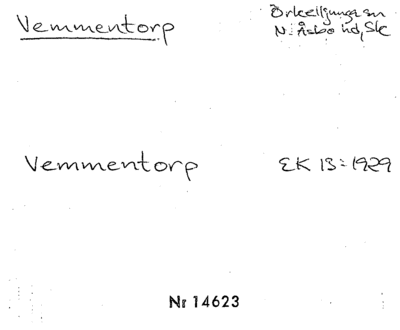 Vemmentorp
Örkelljunga sn
N. Åsbo hd, Sk
Vemmentorp
EK 13:1929
Nr 14623